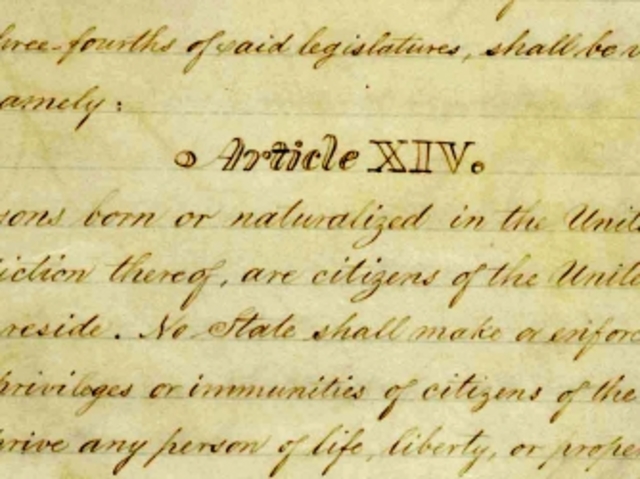 hree-fourths of said legislatures, shall be v
amely:
Article XIV.
sons born or naturalized in the Unite
iction thereof, are citizens of the Unite
reside. No State shall make or enforc
privileges or immunities of citizens of the
prive any person of life, liberty, or proper